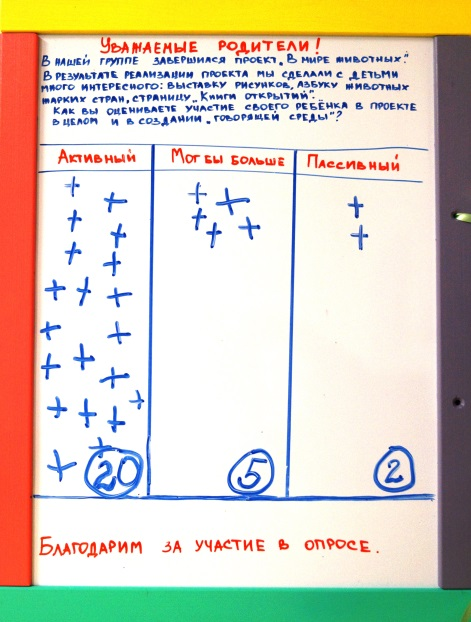 Уважаемые родители!
В нашей группе завершился проект „В мире животных".
В результате реализации проекта мы сделали с детьми
много интересного: выставку рисунков, азбуку животных
жарких стран, страницу „Книги открытий".
Как вы оцениваете участие своего ребёнка в проекте
в целом и в создании „говорящей среды"?
Активный Мог бы больше Пассивный
20 5 2
Благодарим за участие в опросе.